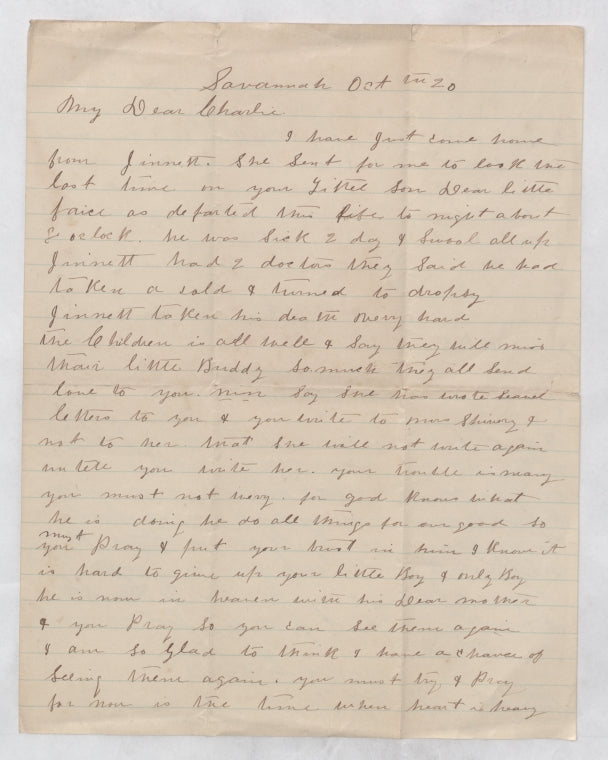 Savannah Oct th 20
My Dear Charlie
I have Just come home
from Jinnett. She Sent for me to look the
last time on your Littel Son Dear little
faice as departed this life to night about
o clock. he was Sick 2 day & Swool all up
Jinnett had 2 doctors they Said he had
taken a cold & turned to dropsy
Jinnett taken his death very hard
the Children is all well & Say they will miss
thair little Buddy So much they all Send
love to you. Say She has wrote Seaverl
letters to you & you write to mrs &
not to her. that She will not write again
untell you write her. your trouble is many
you must not wery. for god knows what
he is doing he do all things for our good So
must
you Pray & put your trust in him I Know it
is hard to give up your little Boy & only Boy
he is now in heaven with his Dear mother
& you Pray So you can See them again
I am So Glad to think I have a chance of
Seeing them again. you must try & Pray
for now is the time when heart is heavy